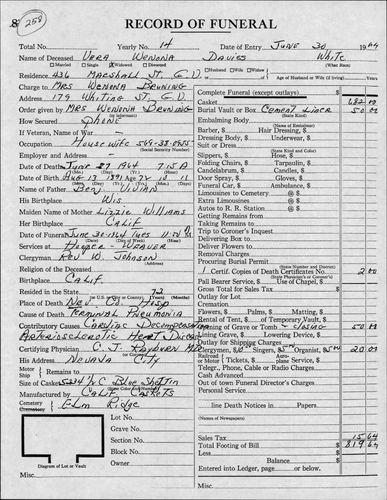 258
RECORD OF FUNERAL
Total No. Yearly No. 14 Date of Entry June 30 1964
Name of Deceased Vera Wenona Davies White
Married Single Widowed Divorced Husband Wife Widow (What Race)
Residence 436 Marshall St. G.V. Age of Husband or Wife (if living) Years
Charge to Mrs Wenona Bruning
Address 179 Whiting St. G.V.
Order given by Mrs Wenona Bruning
How Secured Phone
If Veteran, Name of War -
Occupation House wife 569-38-0955
Employer and Address
Date of Death June 27 1964 7:15 A
Date of Birth Aug 13 1891 Age 72 10 11
Name of Father Benj Vivian
His Birthplace Wis
Maiden Name of Mother Lizzie Williams
Her Birthplace Calif
Date of Funeral June 30-1964 Tues 11
Services at Hooper-Weaver
Clergyman Rev W. Johnson
Religion of the Deceased
Birthplace Calif.
Resided in the State 72
Place of Death Nev. Co. Hosp
Cause of Death Terminal Pneumonia
Contributory Causes Cardiac Decompensation
Arteriosclerotic Heart Disease
Certifying Physician C. J. Rayburn MD
His Address Nevada City
Motor
Remains to
Ship
Size of Casket Blue Sheltin
Manufactured by Calif Caskets
Cemetery
Crematory Elm Ridge
Lot No.
Grave No.
Section No.
Block No.
Owner
Diagram of Lot or Vault
Misc.
Complete Funeral (except outlays) $
Casket 682 00
Burial Vault or Box Cement Liner 50 00
(State Kind)
Embalming Body
Barber, $ Hair Dressing, $
Dressing Body, $ Underwear, $
Suit or Dress
(State Kind and Color)
Slippers, $ Hose, $
Folding Chairs, $ Tarpaulin, $
Candelabrum, $ Candles, $
Door Spray, $ Gloves, $
Funeral Car, $ Ambulance, $
Limousines to Cemetery @ $
Extra Limousines @ $
Autos to R. R. Station @ $
Getting Remains
Taking Remains
Trip to Coroner's Inquest
Delivering Box to
Delivering Flowers to
Removing Remains
Procuring Burial Permit
(State Number and District)
1 Certif. Copies of Death Certificates No. 2 00
Pall Bearer Service, $ Use of Chapel, $
Gross Total for Sales Tax $
Outlay for Lot
Cremation
Flowers, $ Palms, $ Matting, $
Rental of Tent, $ of Temporary Vault, $
Opening of Grave or Tomb - Closing 50 00
Lining Grave, $ Lowering Device, $
Outlay for Shipping Charges
Clergyman, $10 Singers, $5 Organist, $5 20 00
Telegr., Phone, Cable or Radio Charges
Cash Advanced
Out of town Funeral Director's Charges
Personal Service
(Names of Newspapers)
line Death Notices in Papers
Sales Tax 15 64
Total Footing of Bill $ 819 64
Less $
Balance $
Entered into Ledger, page or below.
Misc.